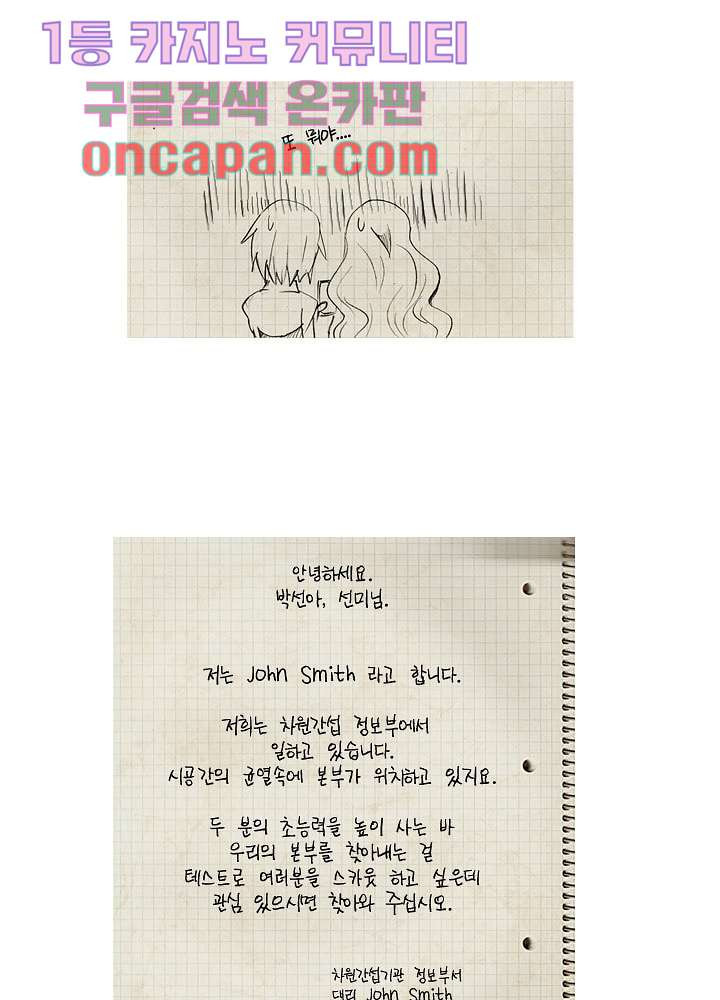 1등 카지노 커뮤니티
구글검색 온카판
또 뭐야....
oncapan.com
안녕하세요.
박선아, 선미님.
저는 John Smith 라고 합니다.
저희는 차원간섭 정보부에서
일하고 있습니다.
시공간의 균열속에 본부가 위치하고 있지요.
두 분의 초능력을 높이 사는 바
우리의 본부를 찾아내는 걸
테스트로 여러분을 스카웃 하고 싶은데
관심 있으시면 찾아와 주십시오.
차원간섭기관 정보부서
대리 John Smith